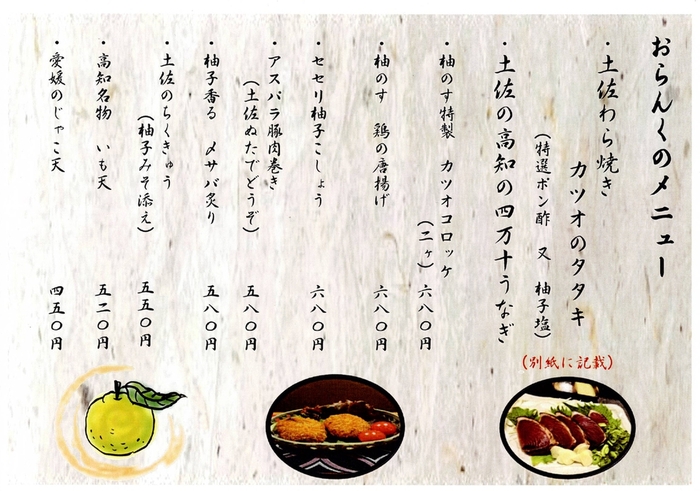 おらんくのメニュー
・土佐わら焼き
カツオのタタキ
(特選ポン酢 又 柚子塩)
・土佐の高知の四万十うなぎ
(別紙に記載)
・柚のす特製 カツオコロッケ
(二ヶ) 六八〇円
・柚のす 鶏の唐揚げ 六八〇円
・セセリ柚子こしょう 六八〇円
・アスパラ豚肉巻き
(土佐ぬたでどうぞ) 五八〇円
・柚子香る 〆サバ炙り 五八〇円
・土佐のちくきゅう
(柚子みそ添え) 五五〇円
・高知名物 いも天 五二〇円
・愛媛のじゃこ天 四五〇円